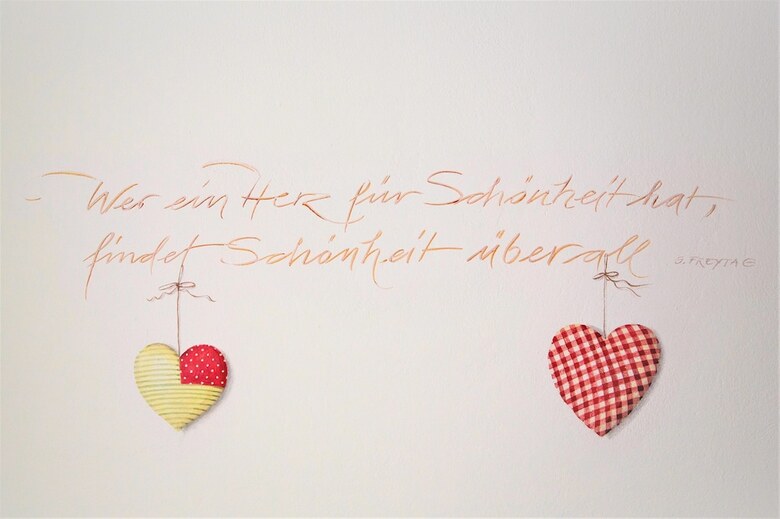 Wer ein Herz für Schönheit hat,
findet Schönheit überall
G. FREYTAG